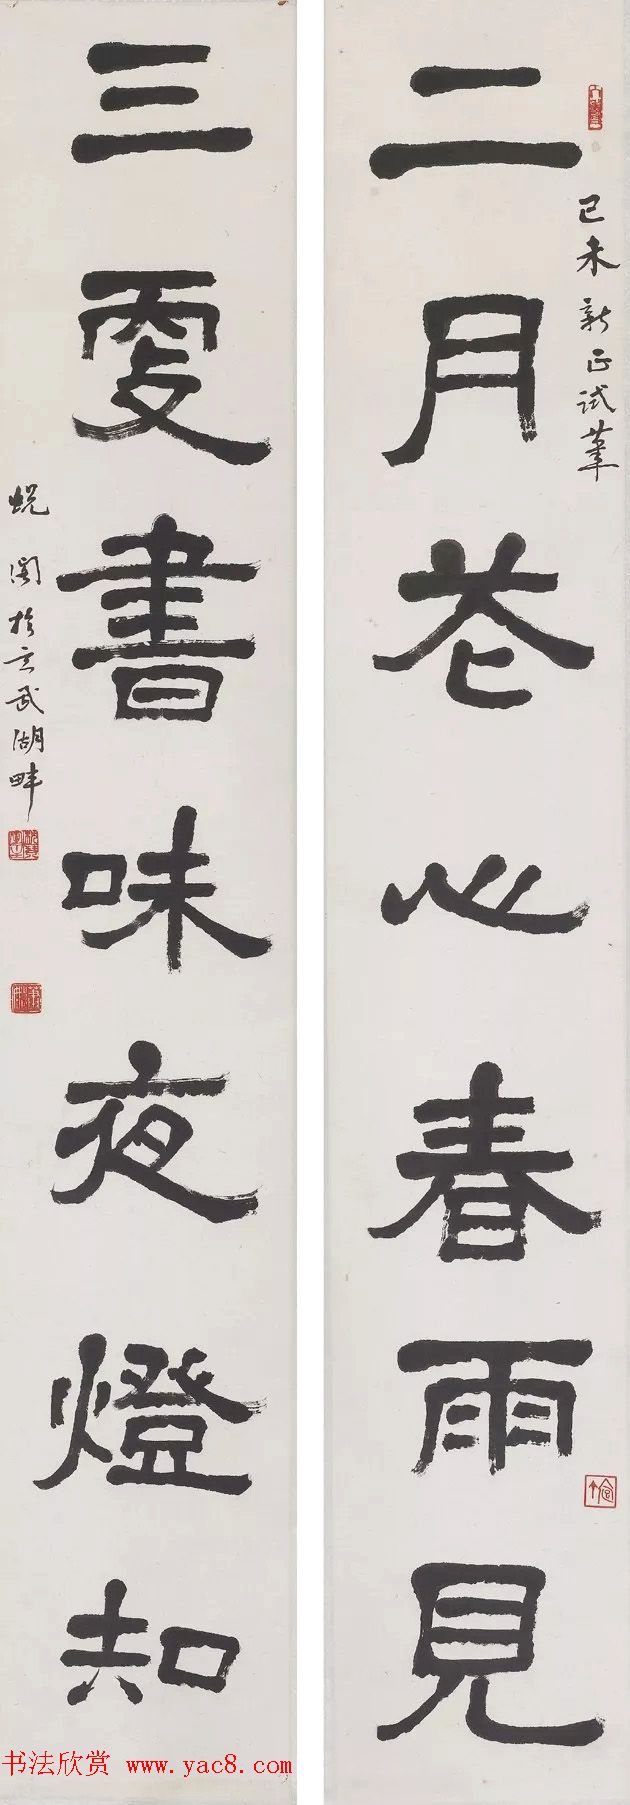 二月花心春雨見
己未新正試筆
三更書味夜燈知
蜕闇於玄武湖畔
书法欣赏 www.yac8.com